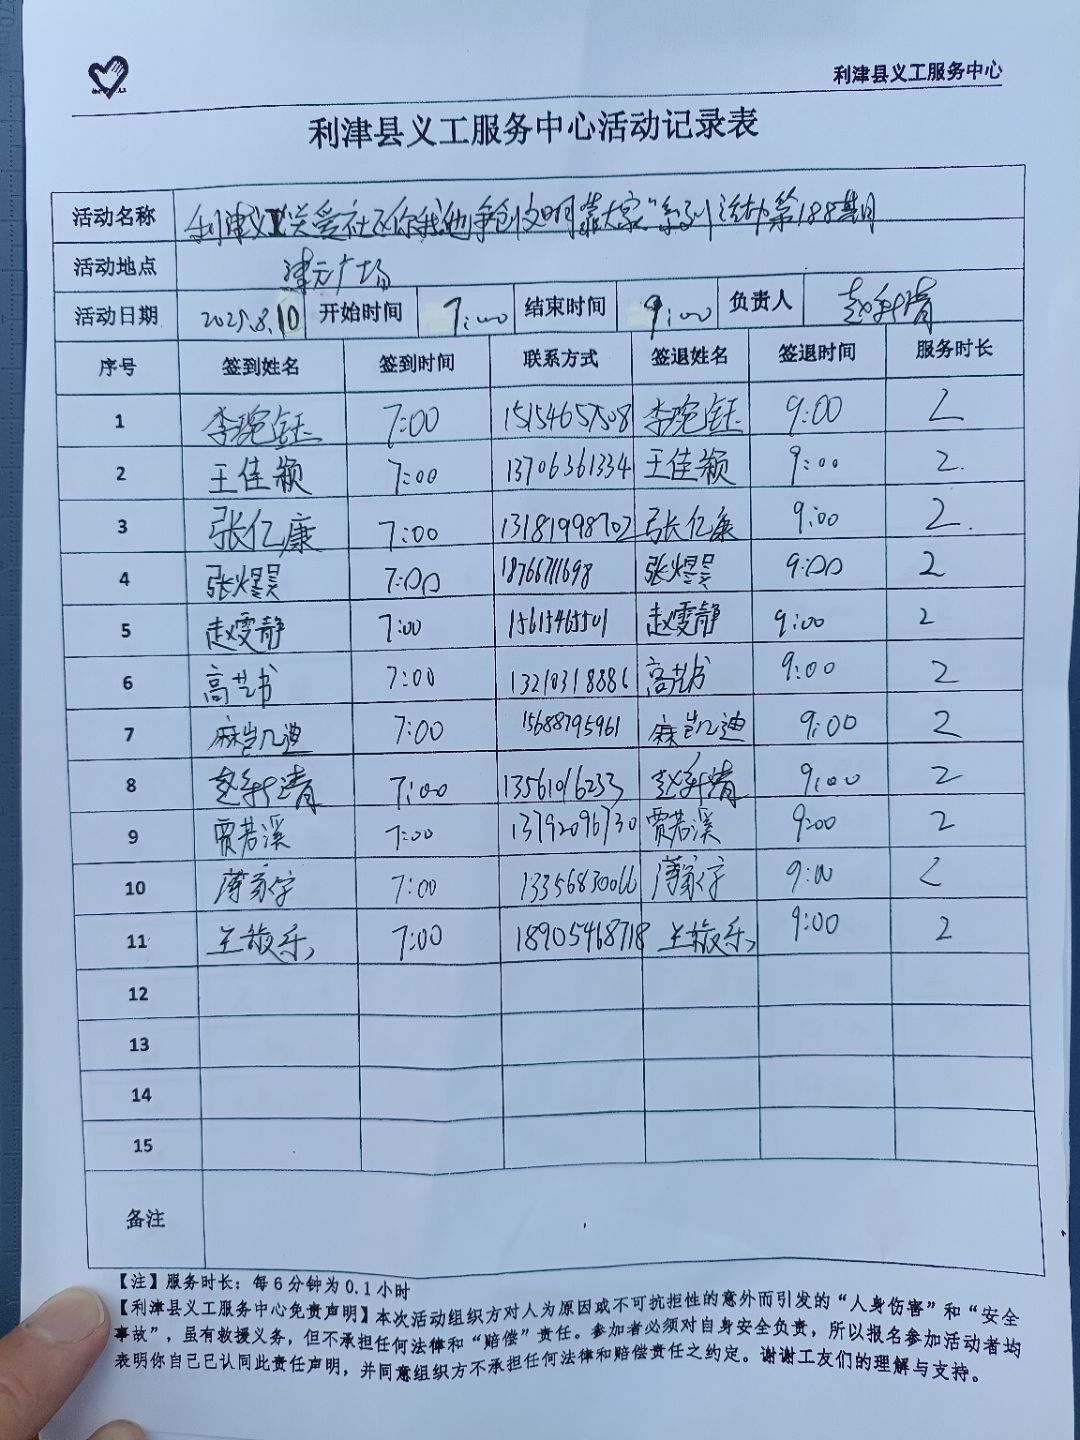 利津县义工服务中心
利津县义工服务中心活动记录表
活动名称 利津义工"关爱社区你我他争创文明靠大家"系列活动第188期
活动地点 津元广场
活动日期 2025.8.10 开始时间 7:00 结束时间 9:00 负责人 赵新清
序号 签到姓名 签到时间 联系方式 签退姓名 签退时间 服务时长
1 李琬钰 7:00 15154657508 李琬钰 9:00 2
2 王佳颖 7:00 13706361334 王佳颖 9:00 2.
3 张亿康 7:00 13181998702 张亿康 9:00 2.
4 张煜昊 7:00 18766711698 张煜昊 9:00 2
5 赵雯静 7:00 15615465501 赵雯静 9:00 2
6 高艺书 7:00 13210318886 高艺书 9:00 2
7 麻凯迪 7:00 15688795961 麻凯迪 9:00 2
8 赵新清 7:00 13561016233 赵新清 9:00 2
9 贾若溪 7:00 13792096730 贾若溪 9:00 2
10 薄家宇 7:00 13356830066 薄家宇 9:00 2
11 7:00 18905468718 9:00 2
12
13
14
15
备注
【注】服务时长：每6分钟为0.1小时
【利津县义工服务中心免责声明】本次活动组织方对人为原因或不可抗担性的意外而引发的“人身伤害”和“安全
事故”，虽有救援义务，但不承担任何法律和“赔偿”责任。参加者必须对自身安全负责，所以报名参加活动者均
表明你自己已认同此责任声明，并同意组织方不承担任何法律和赔偿责任之约定。谢谢工友们的理解与支持。